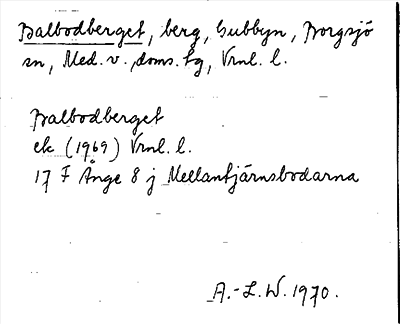 Balbodberget, berg, Gubbyn, Borgsjö
sn, Med. v. doms. tg, Vrnl. l.
Balbodberget
ek (1969) Vrnl. l.
17 F Ånge 8 j Mellantjärnsbodarna
A.-L.W. 1970.